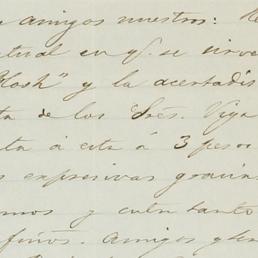 amigos nuestros:
actual en q. se sirve
Hash" y la acertadis
ta de los Sres. Viga
ta á esta á 3 pesos
s expresivas gracias
mos y entre tanto
finos. Amigos y ser